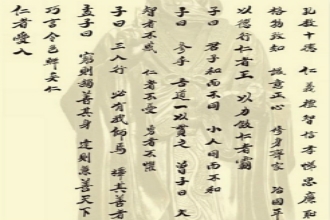 孔教十德 仁義禮智信孝悌忠廉恥
格物致知 誠意正心 修身齊家 治國平
以德行仁者王 以力假仁者霸
子曰 君子和而不同 小人同而不和
子曰 參乎 吾道一以貫之 曾子曰 夫
智者不惑 仁者不憂 勇者不懼
子曰 三人行 必有我師焉 擇其善者
孟子曰 窮則獨善其身 達則兼善天下
巧言令色鮮矣仁
仁者愛人